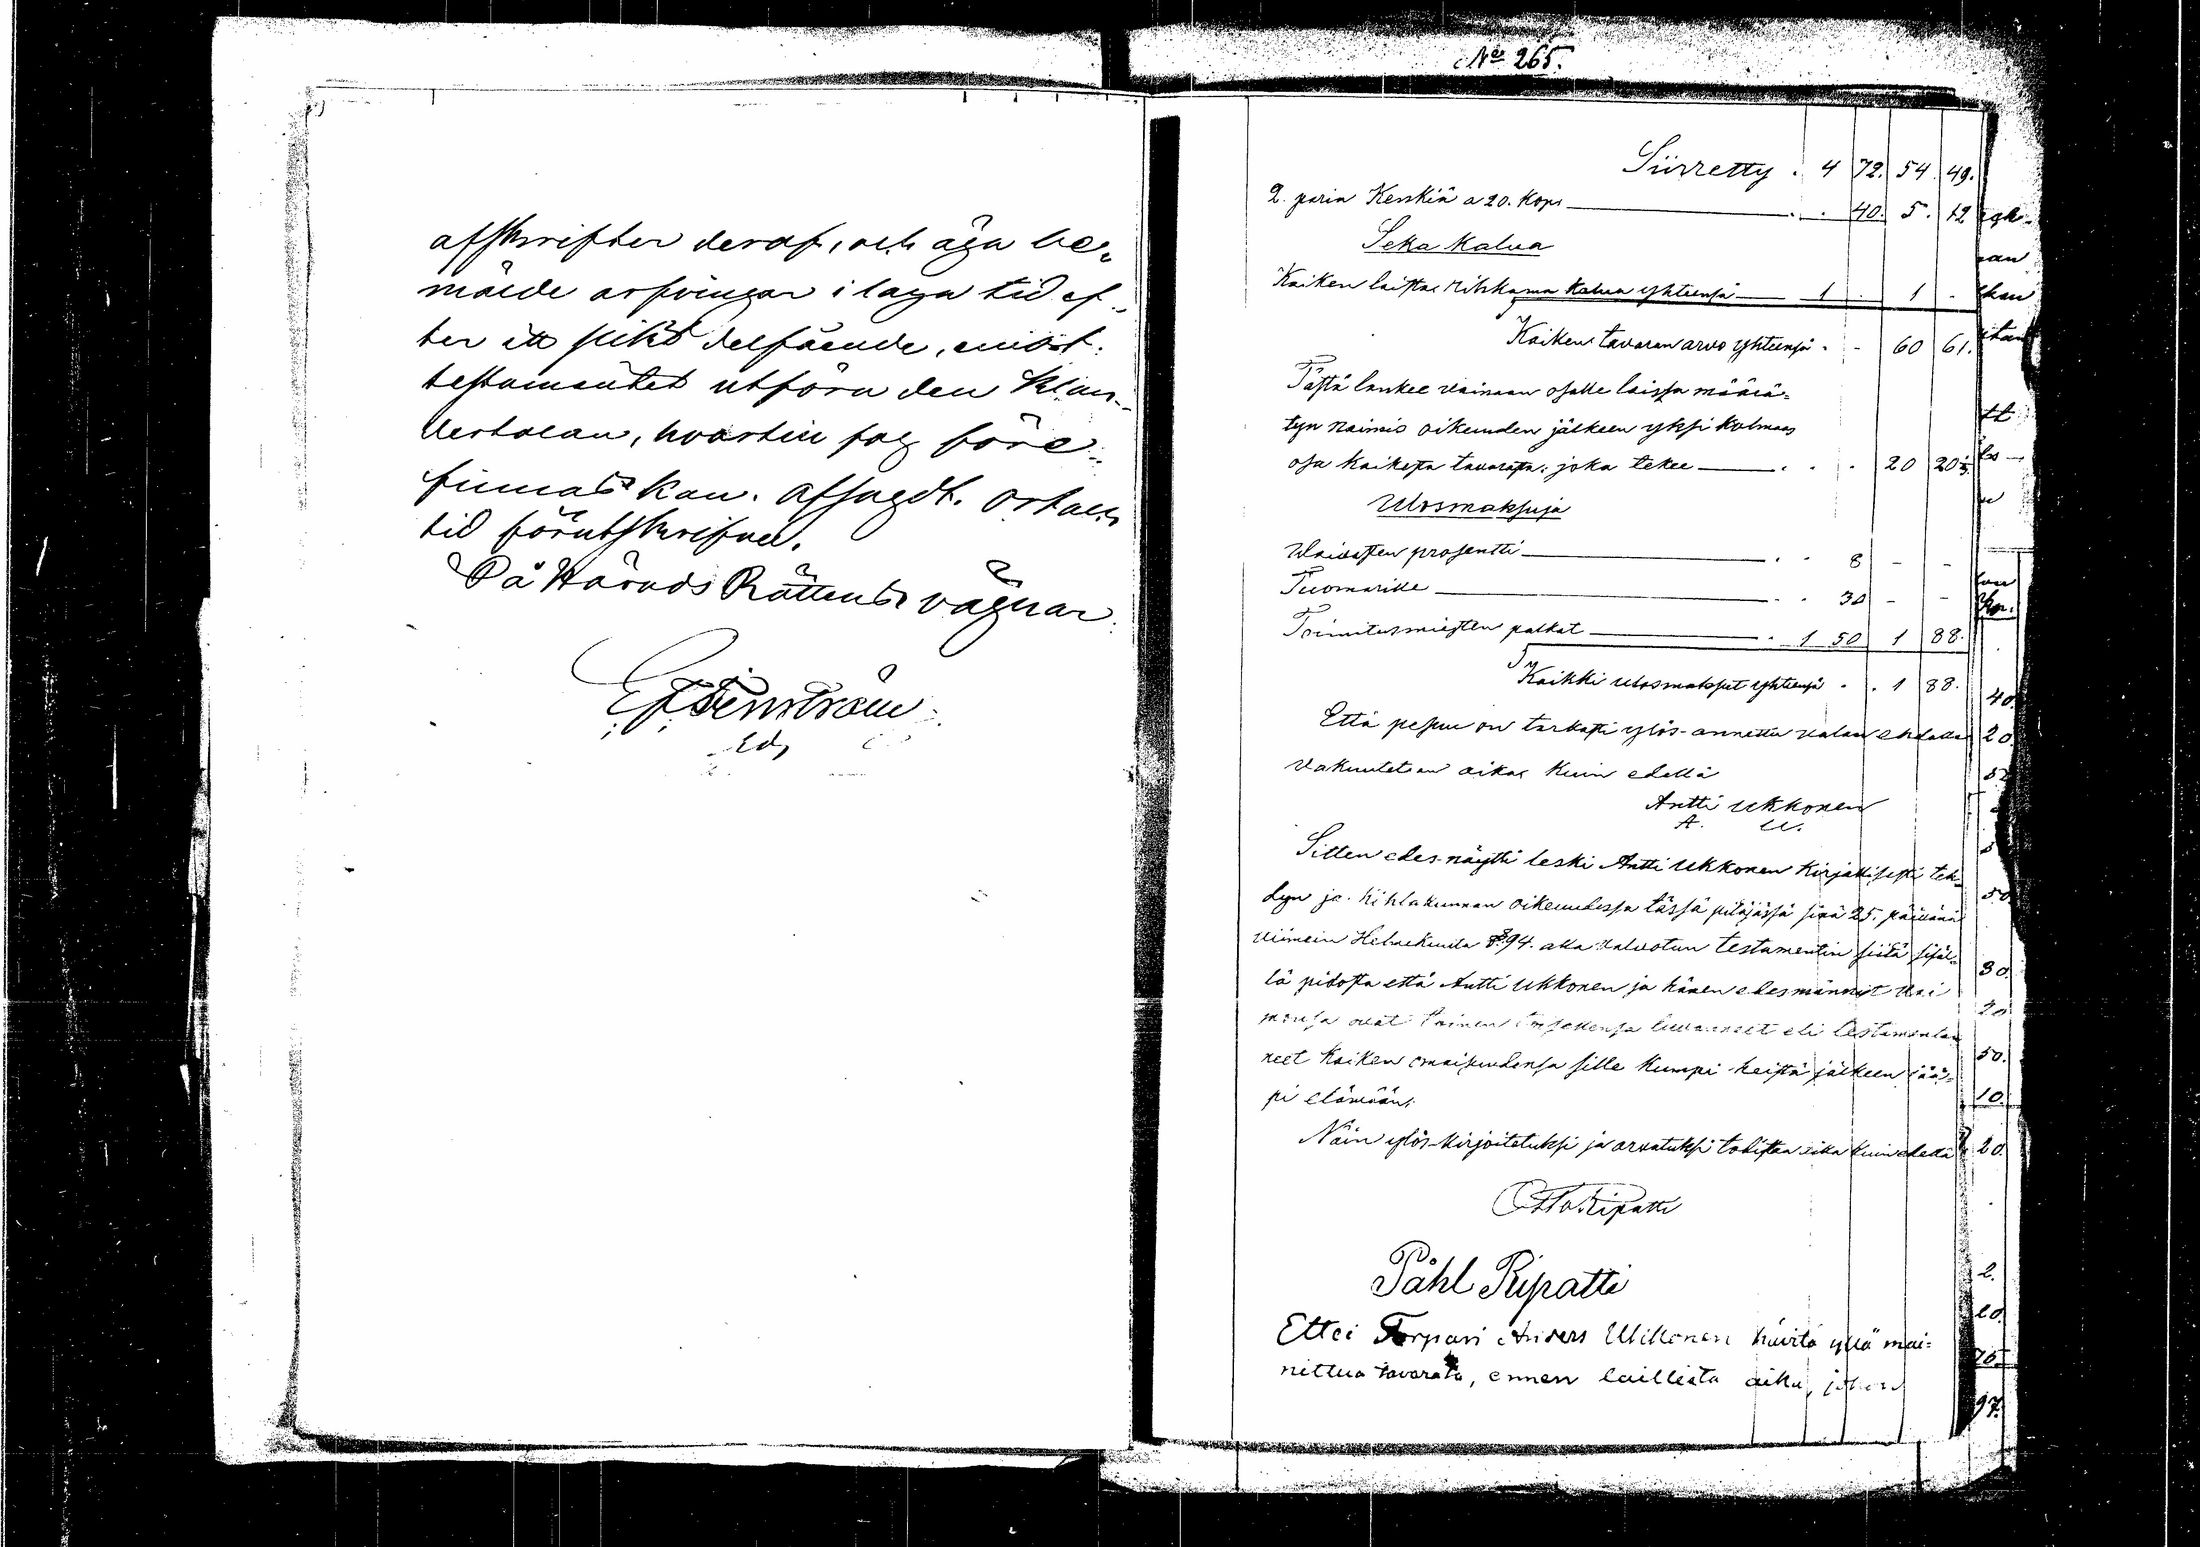 afskrifter deraf, och äga be-
mälde arfvingar i laga tid ef-
ter ett sådant delfående, emot
testamentet utföra den klan-
dertalan, hvartill fog före-
finnas kan. Afsagdt. Ort och
tid förutskrifne.
På Härads Rättens vägnar
No 265.
Siirretty . 4 72. 54. 49.
2. paria Kenkiä a 20. kopi . . 40. 5. 12
Seka kalua
Kaiken laista rihkama kalua yhteensä 1 . 1 -
Kaiken tavaran arvo yhteensä . - 60 61.
Tästä lankee vainaan osalle laissa määrä-
tyn naimis oikeuden jälkeen yksi kolmas
osa kaikesta tavarasta, joka tekee . . . 20 20⅓
Ulosmaksuja
Vaivasten prosentti . . 8 - -
Tuomarille . . 30 - -
Toimitusmiesten palkat . 1 50 1 88.
Kaikki ulosmaksut yhteensä . . 1 88.
Että pesän on tarkasti ylös-annettu valan ehdolla
vakuutetaan aika kuin edellä
Antti Ukkonen
A. U.
Sitten edes näytti leski Antti Ukkonen kirjallisesti teh-
dyn ja kihlakunnan oikeudessa tässä pitäjässä sinä 25. päivänä
viimein Helmekuuta 894. alla valvotun testamentin siitä sisäl-
lä pidosta että Antti Ukkonen ja hänen edesmännyt vai
monsa ovat toinen toisellensa luvanneet eli testamentan
neet kaiken omaisuudensa sille kumpi heistä jälkeen jää-
pi elämään.
Näin ylös-kirjoitetuksi ja arvatuksi todistaa aika kuin edellä
Otto Ripatti
Påhl Ripatti
Ettei Torpari Anders Ukkonen hävitä yllä mai-
nittua tavarata, ennen laillista aika, johon